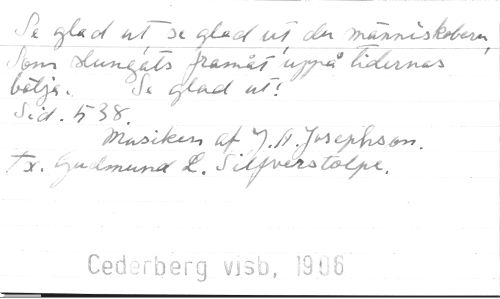 Se glad ut, se glad ut, du människobarn,
Som slungats framåt uppå tidernas
bölja. Se glad ut!
Sid. 538.
Musiken af J. A. Josephson.
Tx. Gudmund L. Silfverstolpe.
Cederberg visb, 1906